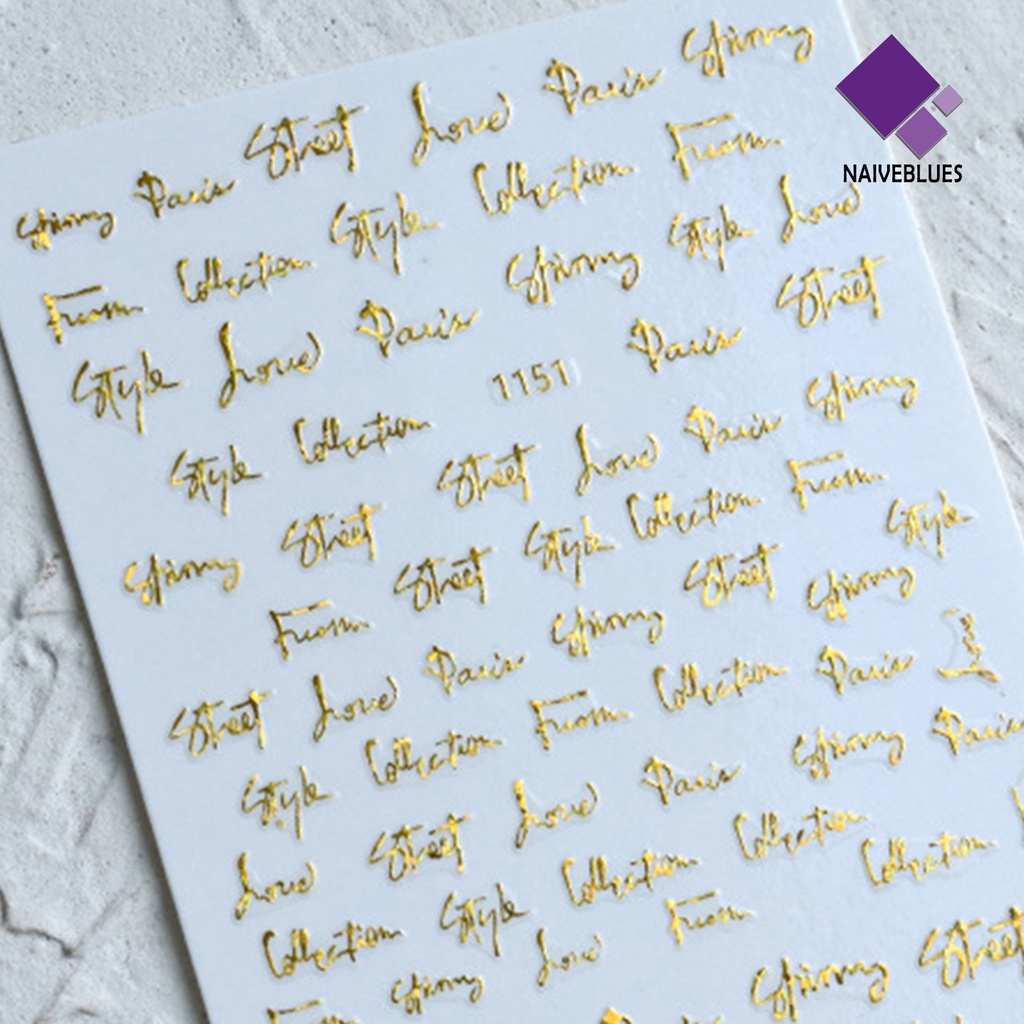 NAIVEBLUES
Spring Paris Street Love Paris Spring
From Collection Style Collection From
Style Love Paris Spring Style Love
Style Collection 1151 Paris Street
Spring Street Street Love Paris Spring
From Street Style Collection From
Street Love Paris Spring Street Spring Style
Style Collection From Collection Paris Love
Love Street Love Paris Spring Paris
Collection Style Collection Collection
Spring Love From Collection
Spring Street